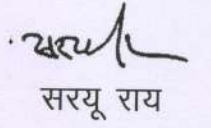 सरयू राय